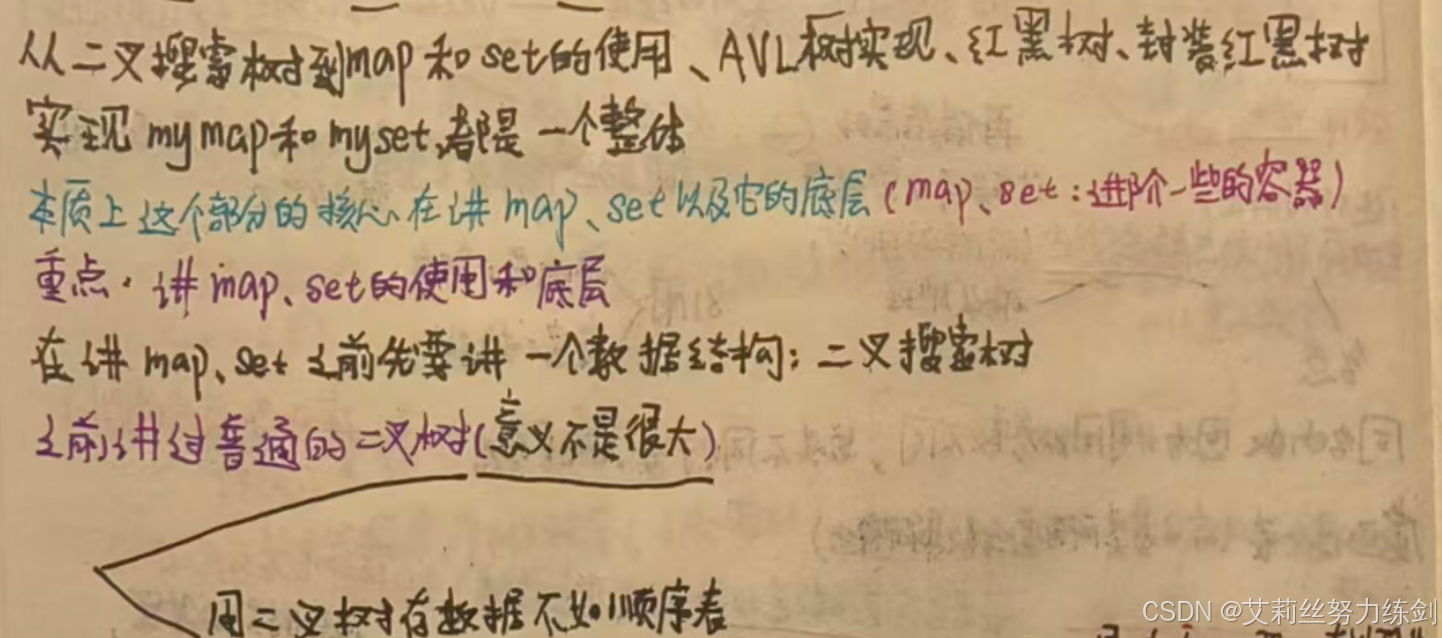 从二叉搜索树到map和set的使用、AVL树实现、红黑树、封装红黑树
实现mymap和myset,都是一个整体
本质上这个部分的核心在讲map、set以及它的底层(map、set:进阶一些的容器)
重点·讲map、set的使用和底层
在讲map、set之前先要讲一个数据结构:二叉搜索树
之前讲过普通的二叉树(意义不是很大)
用二叉树存数据不如顺序表
CSDN @艾莉丝努力练剑